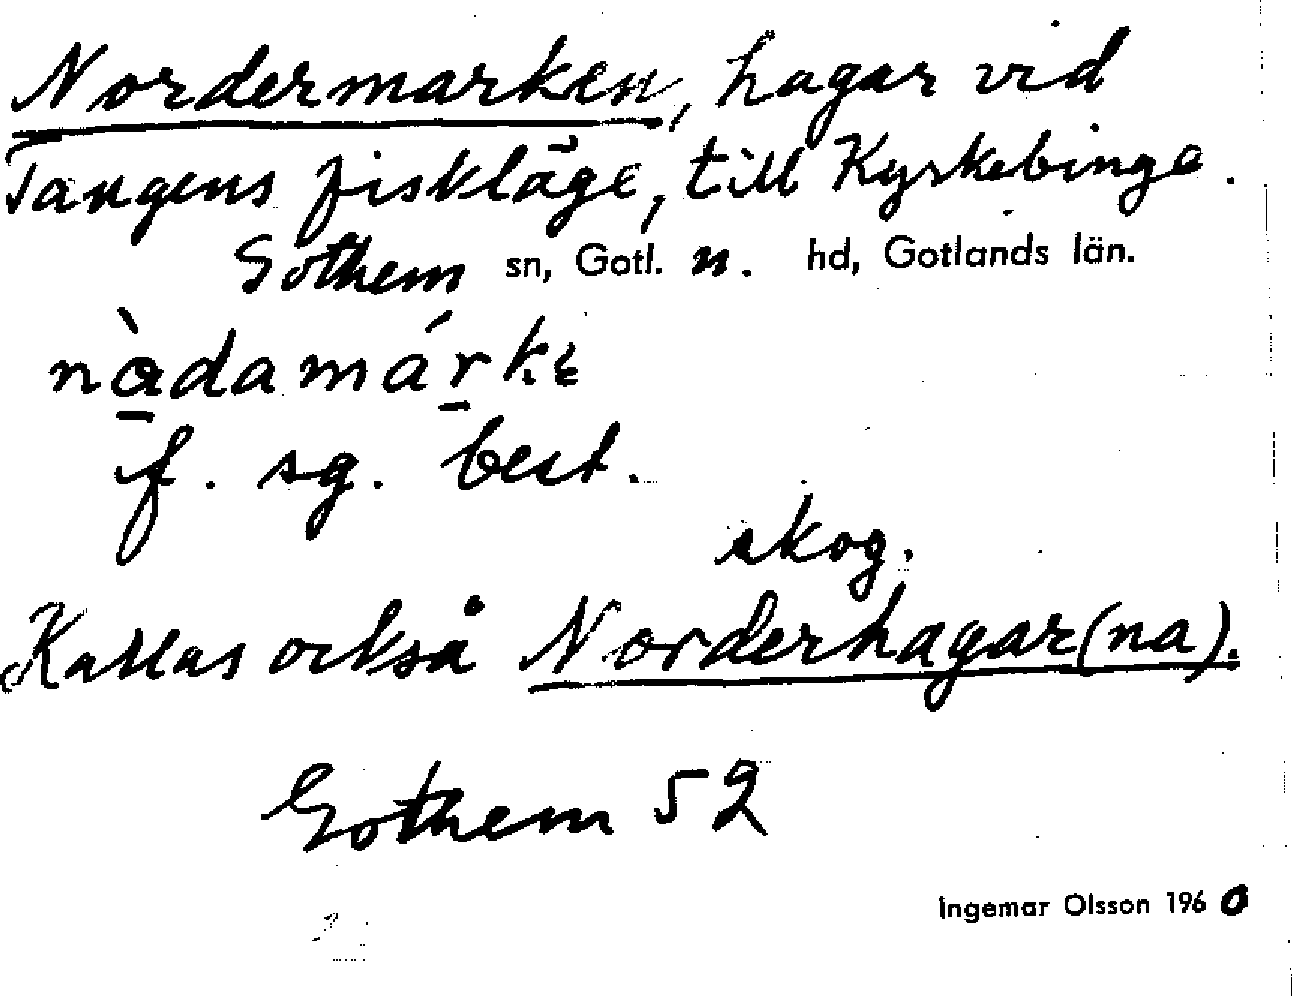 Nordermarken, hagar vid
Tangens fiskläge, till Kyrkebinge.
Gothem sn, Gotl. n. hd, Gotlands län.
nàdamárkɛ
f. sg. best.
skog.
Kallas också Norderhagar(na).
Gothem 52
Ingemar Olsson 1960